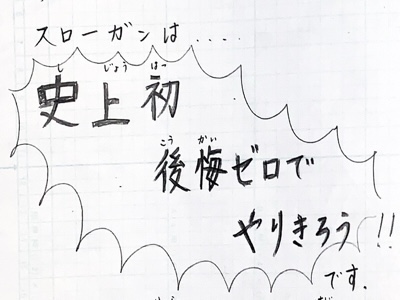 スローガンは....
史上初
後悔ゼロで
やりきろう!!
です.